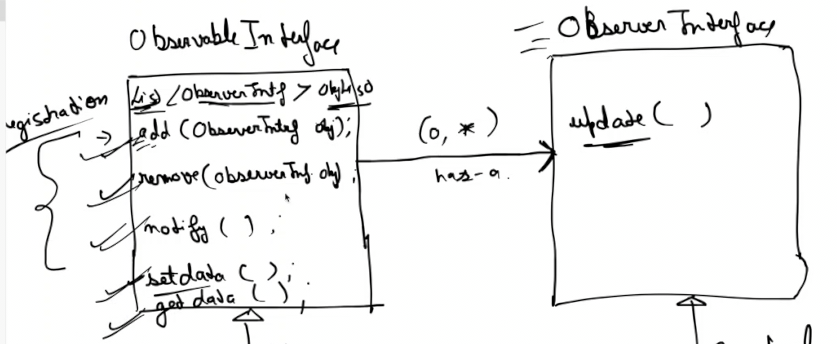 Observable Interface
List <ObserverIntf> objList
add (ObserverIntrf obj);
remove (observerInf. obj);
notify ( );
setdata ( );
get data ( );
registration
(0, *)
has-a.
Observer Interface
update ( )